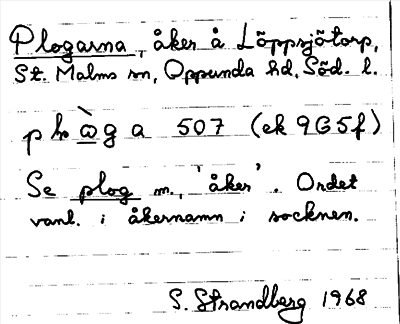 Plogarna, åker å Löppsjötorp,
St. Malms sn, Oppunda hd, Söd. l.
507 (ek 9G5f)
Se plog m., 'åker'. Ordet
vanl. i åkernamn i socknen.
S. Strandberg 1968